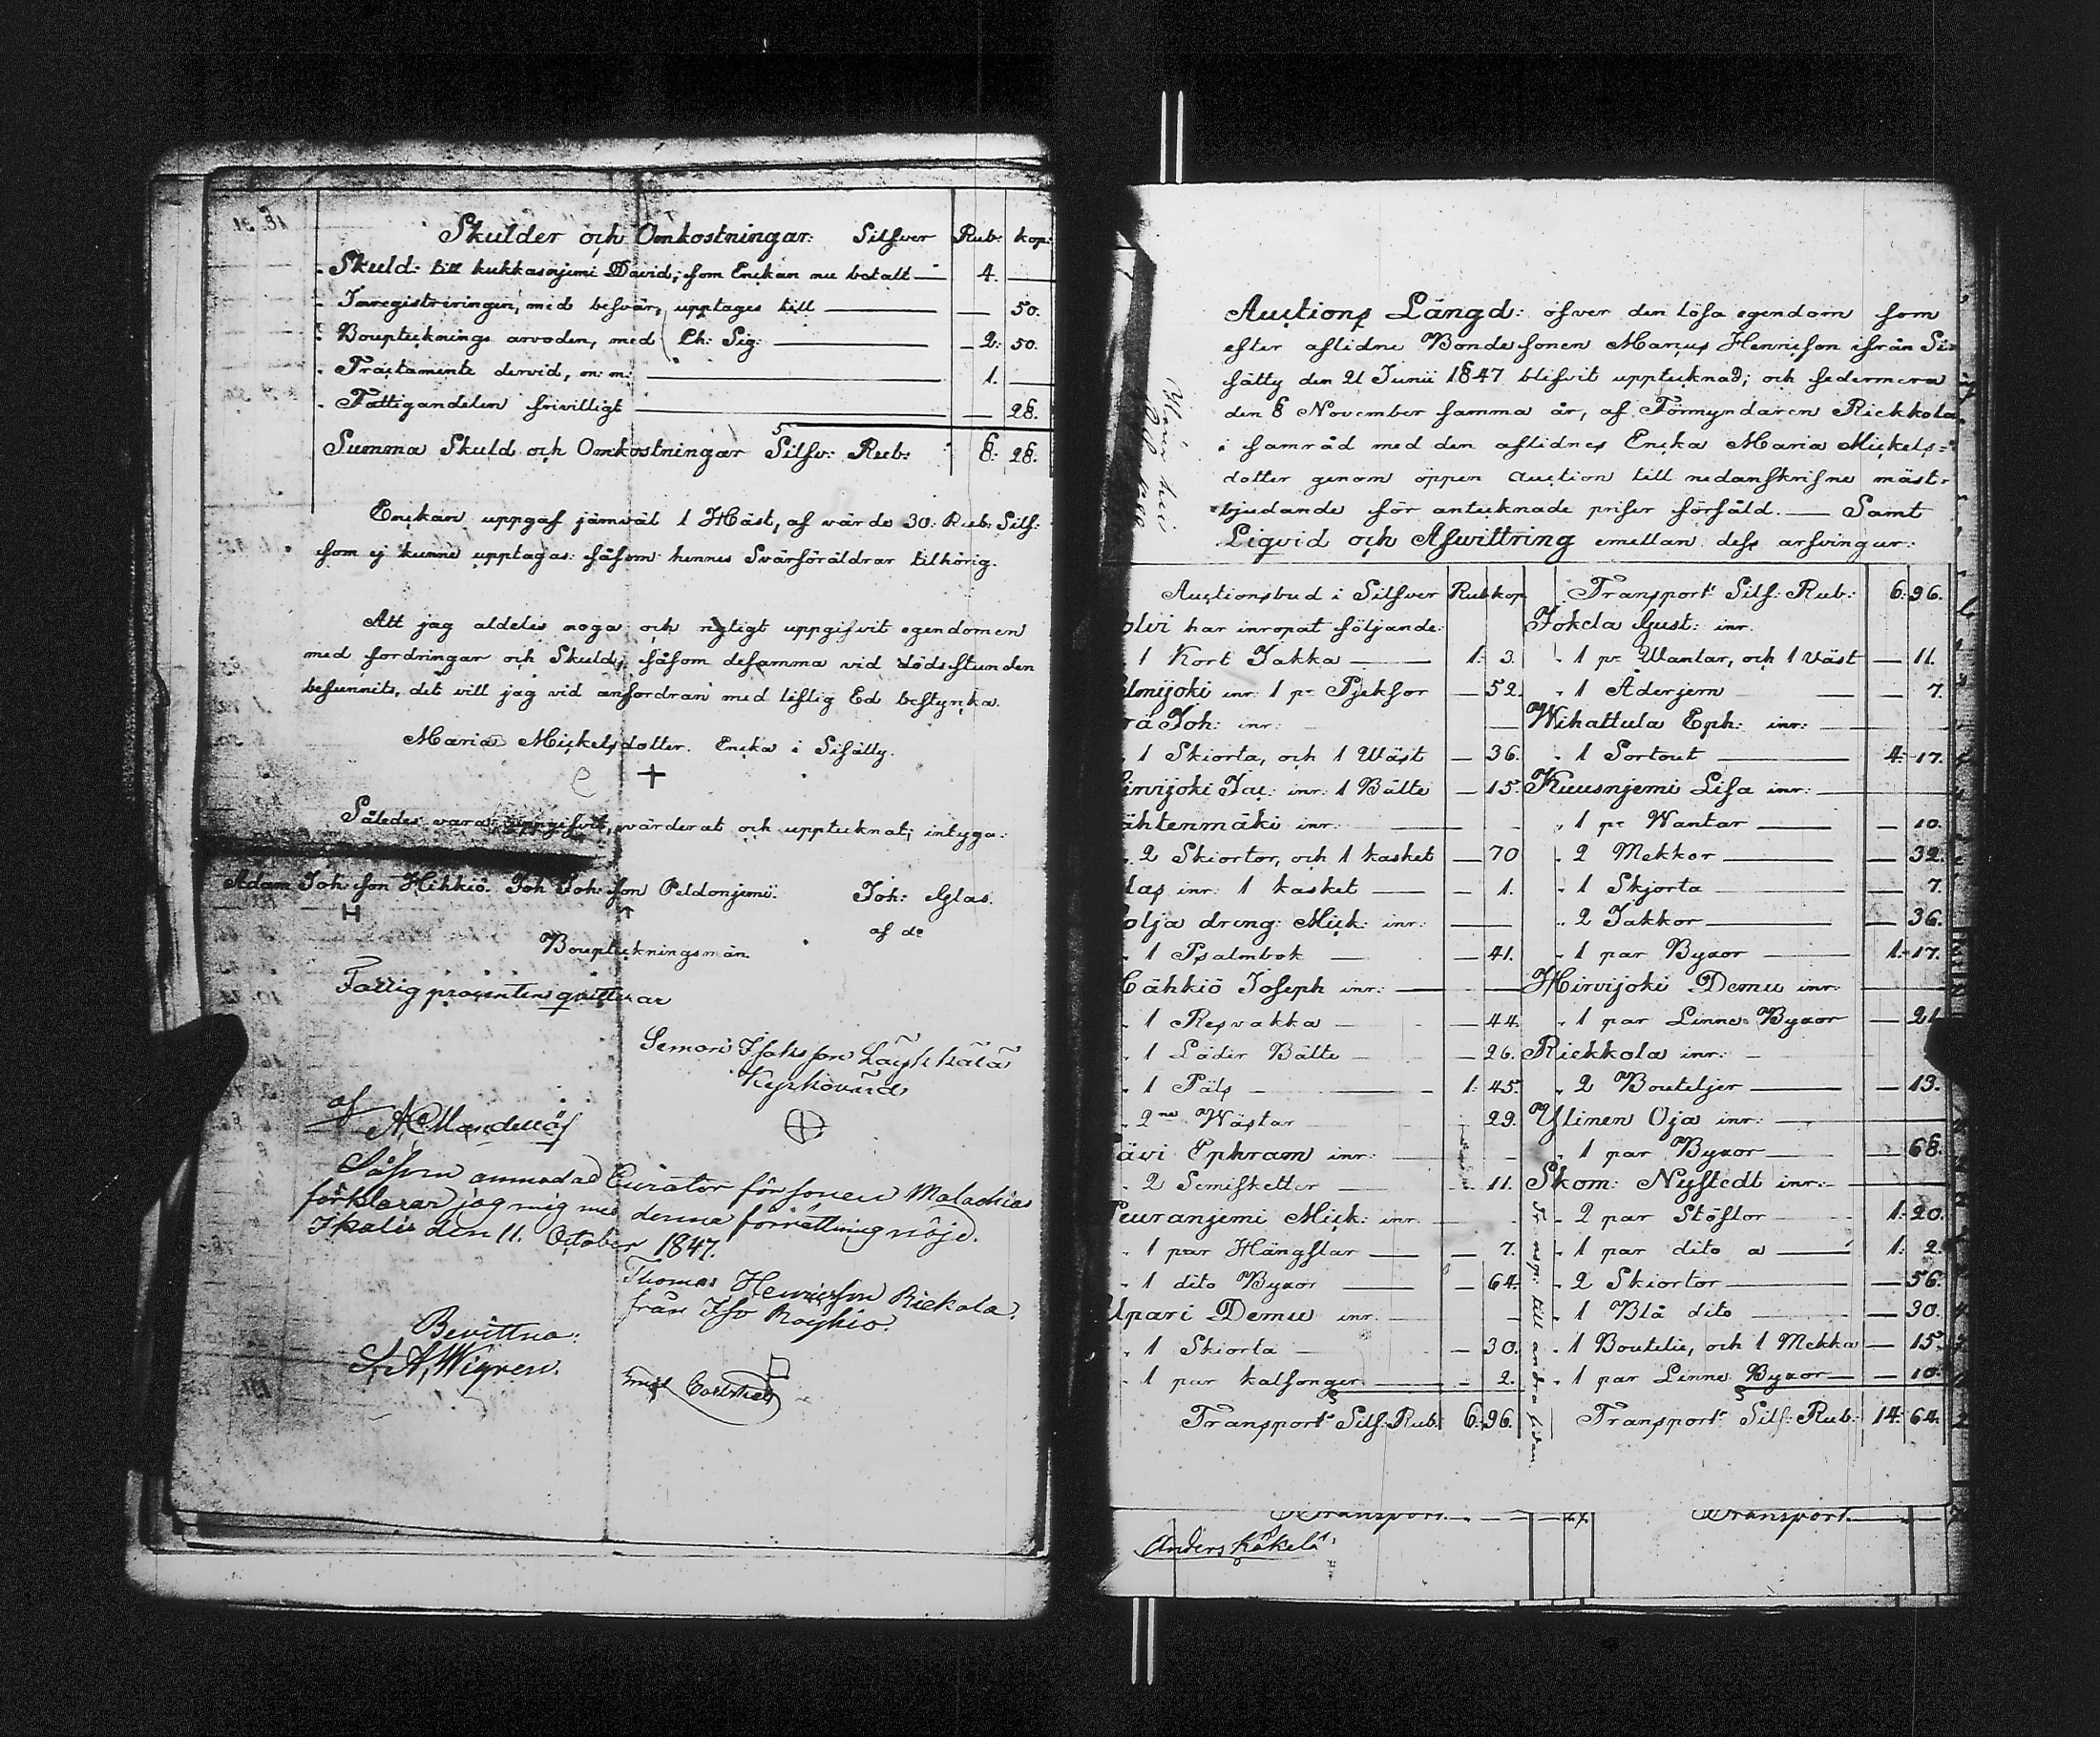 Skulder och Omkostningar: Silfver Rub: kop:
Skuld: till kukkasnjemi David; som Enckan nu betalt — 4. —
Inregistreringen, med besvär, upptages till — — 50.
Boupteknings arvoden, med Ch: Sig: — 2: 50.
Tractamente dervid, m: m: — 1. —
Fattigandelen frivilligt — — 28.
Summa Skuld och Omkostningar Silfv: Rub: 8: 28.
Enckan uppgaf jämväl 1 Häst, af värde 30: Rub: Silf:
som ej kunne upptagas: såsom hennes Svärföräldrar tilhörig.
Att jag aldeles noga och rigtigt uppgifvit egendomen
med fordringar och Skuld, såsom desamma vid dödsstunden
befunnits, det vill jag vid anfordran med liflig Ed bestyrcka.
Maria Mickelsdotter. Encka i Sisätty.
+
Således vara uppgifvit, värderat och upptecknat; intyga:
Adam Joh:son Hihkiö. Joh: Joh:son Peldonjemi. Joh: Glas.
H af do
Bouptekningsmän.
Fattig procenten qvitterar
Semon Isaksson
Kyrkovärd
af
Såsom anmodad Curator för sonen Malachias
förklarar jag mig med denna förrättning nöjd.
Ikalis den 11. October 1847.
Thomas Henricsson Riekola.
från Iso Röyhiö.
Bevittna:
Auctions Längd: öfver den lösa egendom som
efter aflidne Bondesonen Marcus Henricson ifrån Si-
sätty den 21 Junii 1847 blifvit upptecknad; och sedermera
den 8 November samma år, af Förmyndaren Riekkola
i samråd med den aflidnes Encka Maria Mickels=
dotter genom öppen auction till nedanskrifne mäst-
bjudande för antecknade priser försåld. — Samt
Liqvid och Afwittring emellan dess arfvingar:
Auctionsbud i Silfver Rub kop
olvi har inropat följande:
1 Kort Jakka — 1: 3.
lmijoki inr: 1 pr Pjeksor — 52.
rä Joh: inr: —
1 Skiorta, och 1 Wäst — 36.
irvijoki Jac: inr: 1 Bälte — 15.
ähtenmäki inr: —
2 Skiortor, och 1 kasket — 70
las inr: 1 kasket — 1.
olja dreng: Mick: inr: —
1 Psalmbok — 41.
Cähkiö Joseph inr: —
1 Resvakka — 44.
1 Läder Bälte — 26.
1 Päls — 1: 45.
2ne Wästar 29.
ävi Ephram inr: —
2 Semisketter — 11.
Peuranjemi Mick: inr. —
1 par Hängslar — 7.
1 dito Byxor — 64.
Upari Demu inr. —
1 Skiorta — 30.
1 par kalsonger — 2.
Transport Silf: Rub: 6: 96.
Transport Silf: Rub: 6: 96.
Jokela Gust: inr.
1 pr Wantar, och 1 Väst — 11.
1 Åderjern — 7.
Wihattula Eph: inr: —
1 Sortout — 4: 17.
Kuusnjemi Lisa inr: —
1 pr Wantar — 10.
2 Mekkor — 32.
1 Skjorta — 7.
2 Jakkor — 36.
1 par Byxor — 1: 17.
Hirvijoki Demu inr: —
1 par Linne Byxor — 21
Riekkola inr: —
2 Bouteljer — 13.
Ylinen Oja inr: —
1 par Byxor — 68.
Skom: Nystedt inr: —
2 par Stöflor — 1: 20.
1 par dito a — 1: 2.
2 Skiortor — 56.
1 Blå dito — 30.
1 Boutelie, och 1 Mekka — 15.
1 par Linne Byxor — 10.
Transport Silf: Rub: 14: 64.
till andra sidan.
Transport
Transport
Anders